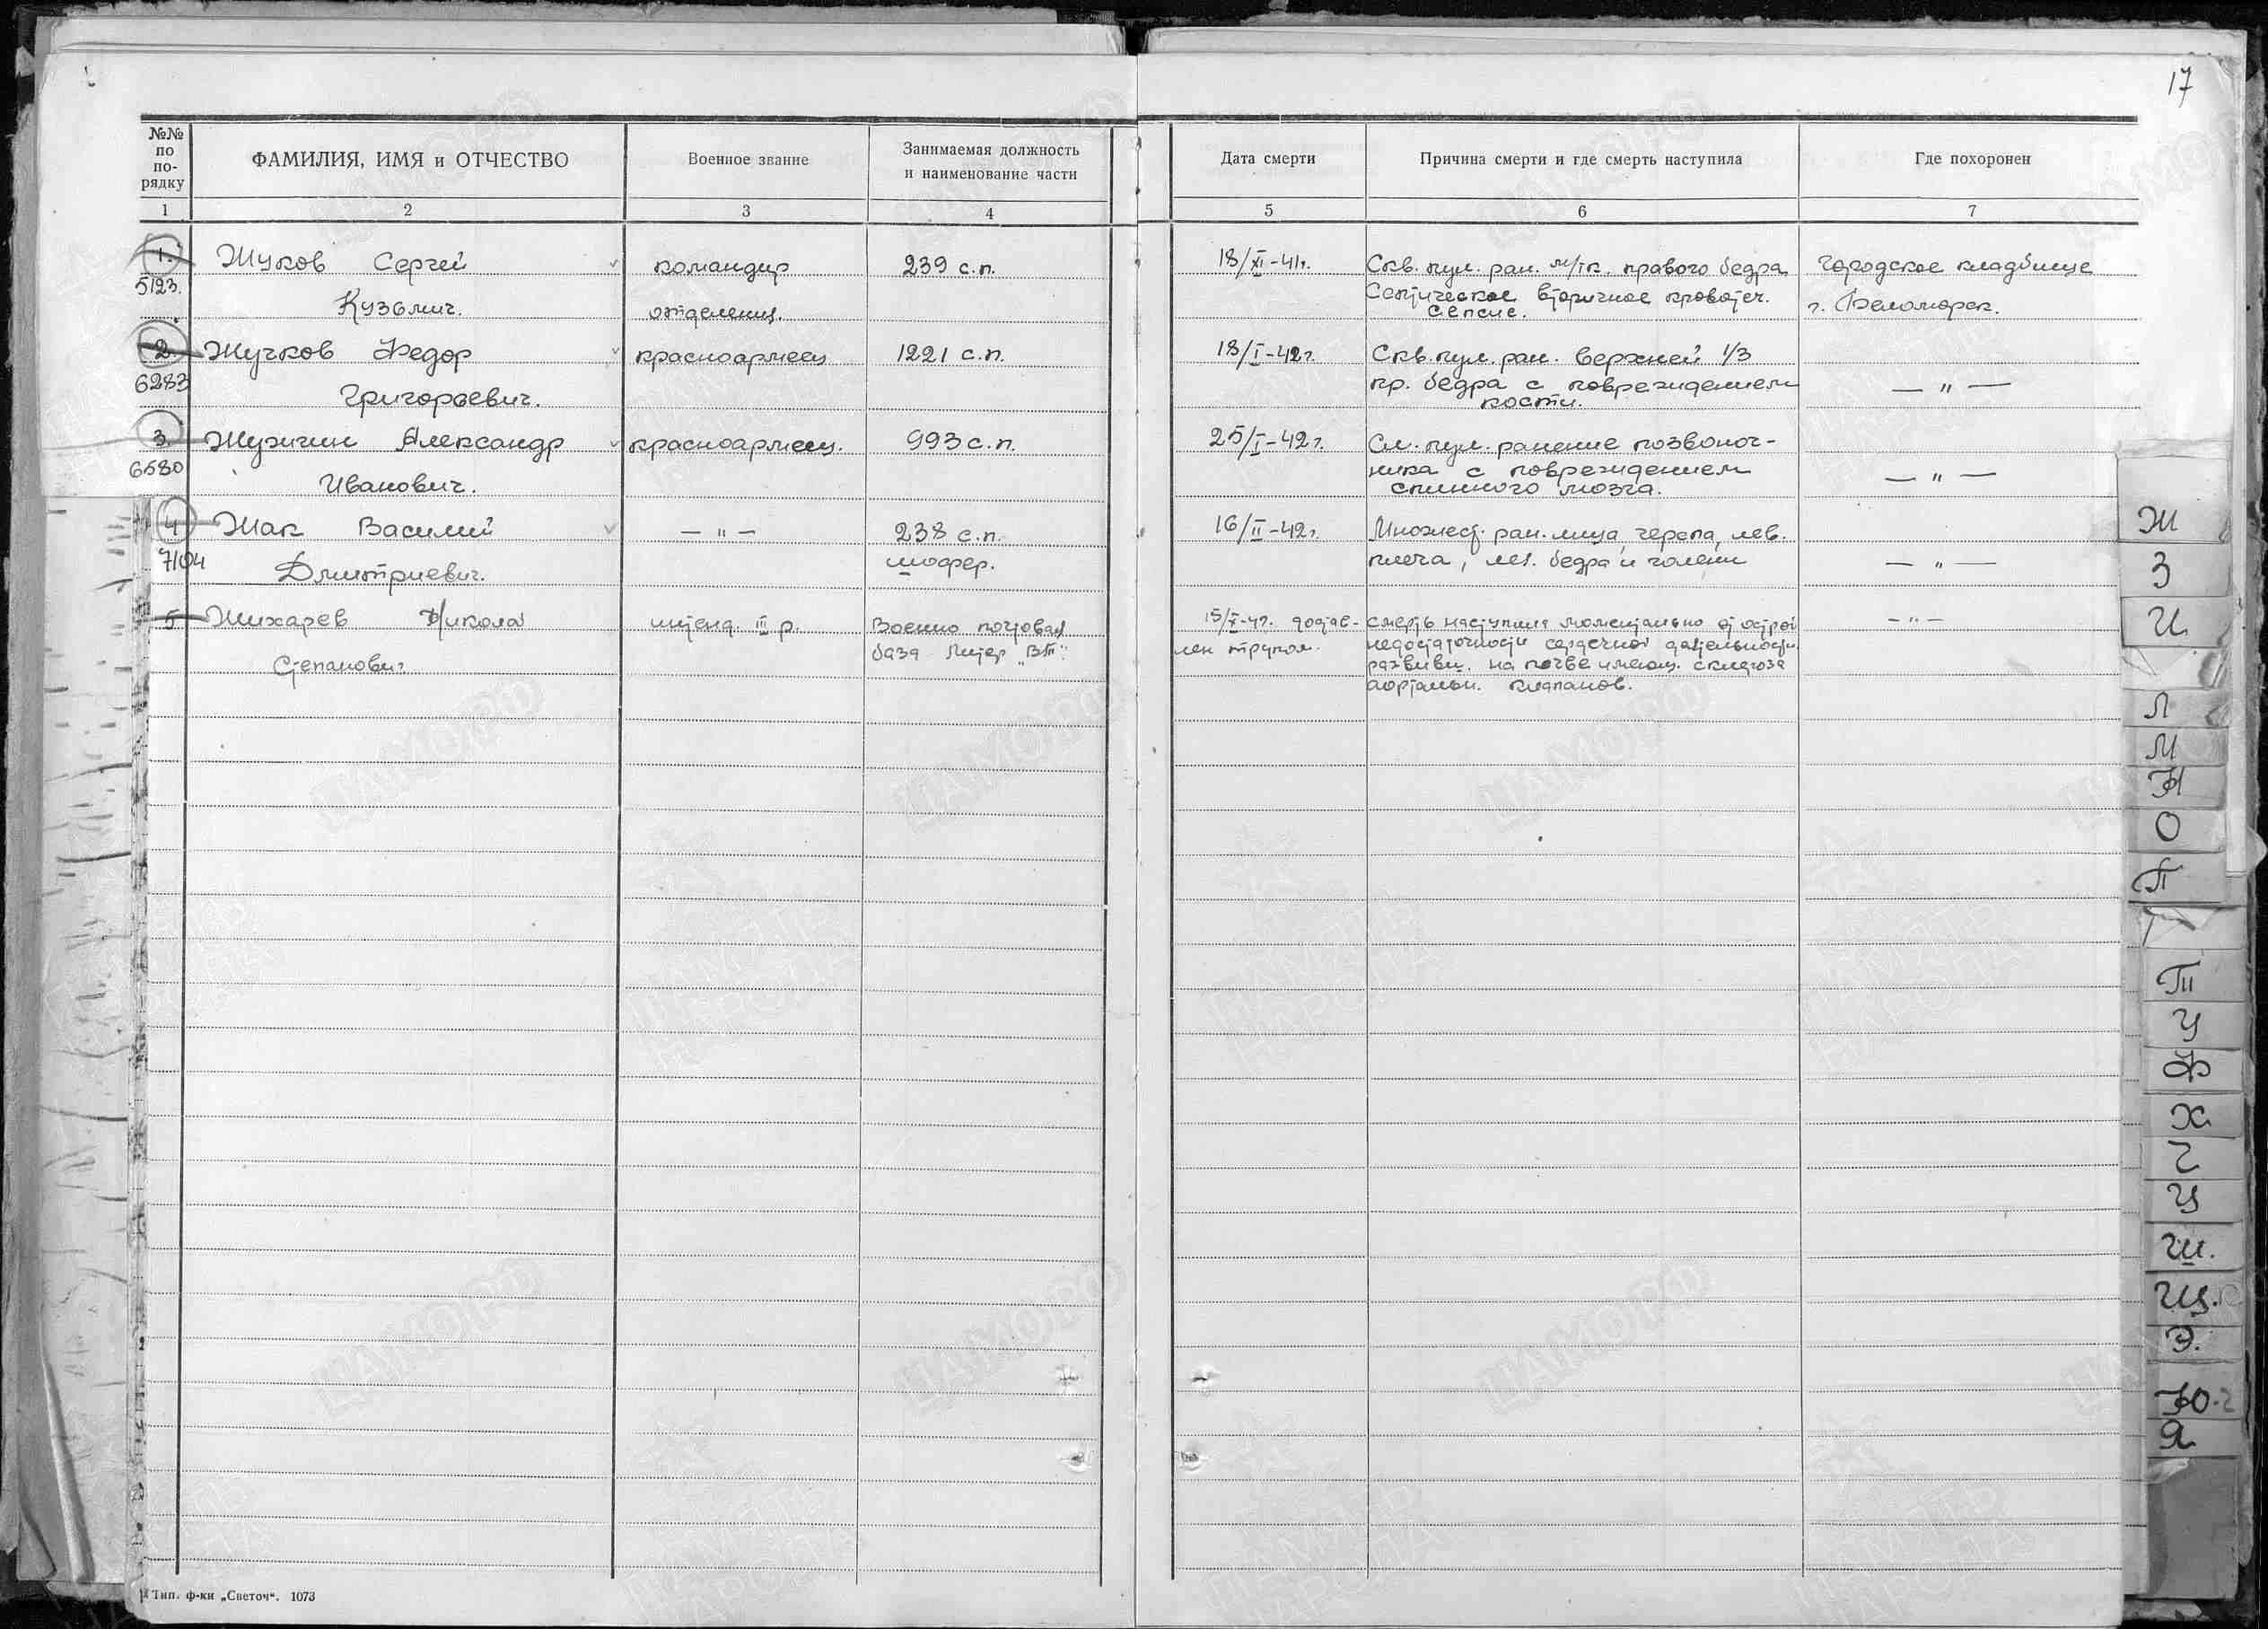 17
№№ по по-рядку
ФАМИЛИЯ, ИМЯ и ОТЧЕСТВО
Военное звание
Занимаемая должность
и наименование части
Дата смерти
Причина смерти и где смерть наступила
Где похоронен
1 2 3 4 5 6 7
1. Жуков Сергей командир 239 с.п. 18/XI-41г. Скв. пул. ран. м/тк. правого бедра Городское кладбище
5123. Септическое вторичное кровотеч.
Кузьмич. отделения. сепсис. г. Беломорск.
2. Жучков Федор красноармеец 1221 с.п. 18/I-42г. Скв. пул. ран. верхней 1/3
6283 пр. бедра с повреждением — " —
Григорьевич. кости.
3. Александр красноармеец. 993 с.п. 25/I-42г. Сл. пул. ранение позвоноч-
6580 ника с повреждением — " —
Иванович. спинного мозга.
4 Жак Василий — " — 238 с.п. 16/II-42г. Множест. ран. лица, черепа, лев.
7104 Дмитриевич. шофер. плеча, лев. бедра и голени — " —
5 Жихарев Никола интенд. III р. Военно почтовая достав- смерть наступила моментально от острой — " —
лен трупом. база Литер „ВТ". недостаточности сердечной деятельности
Степанович развивш. на почве имеющ. склероза
аортальн. клапанов.
Ж
З
И
Л
М
Н
О
П
Т
У
Ф
Х
Ч
Ц
Ш.
Щ.
Э.
Ю
Я
Тип. ф-ки „Светоч". 1073
ЦАМО РФ
ПАМЯТЬ НАРОДА